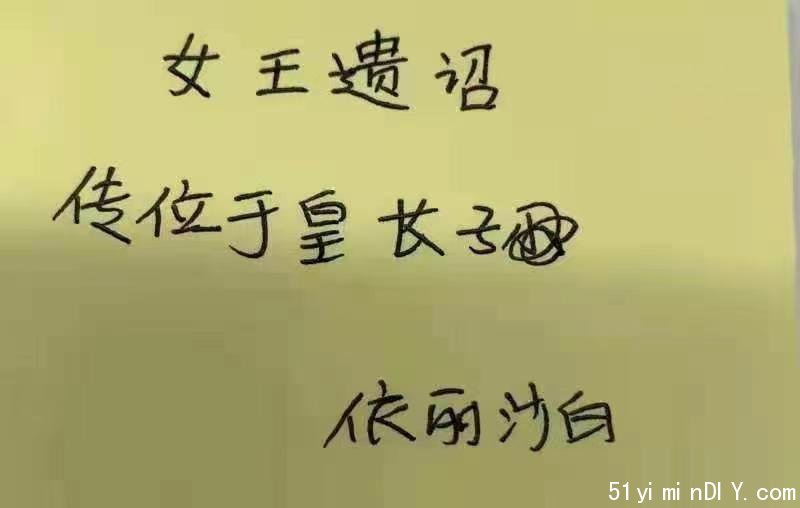 女王遗诏
传位于皇长子
依丽沙白
51yiminDIY.com